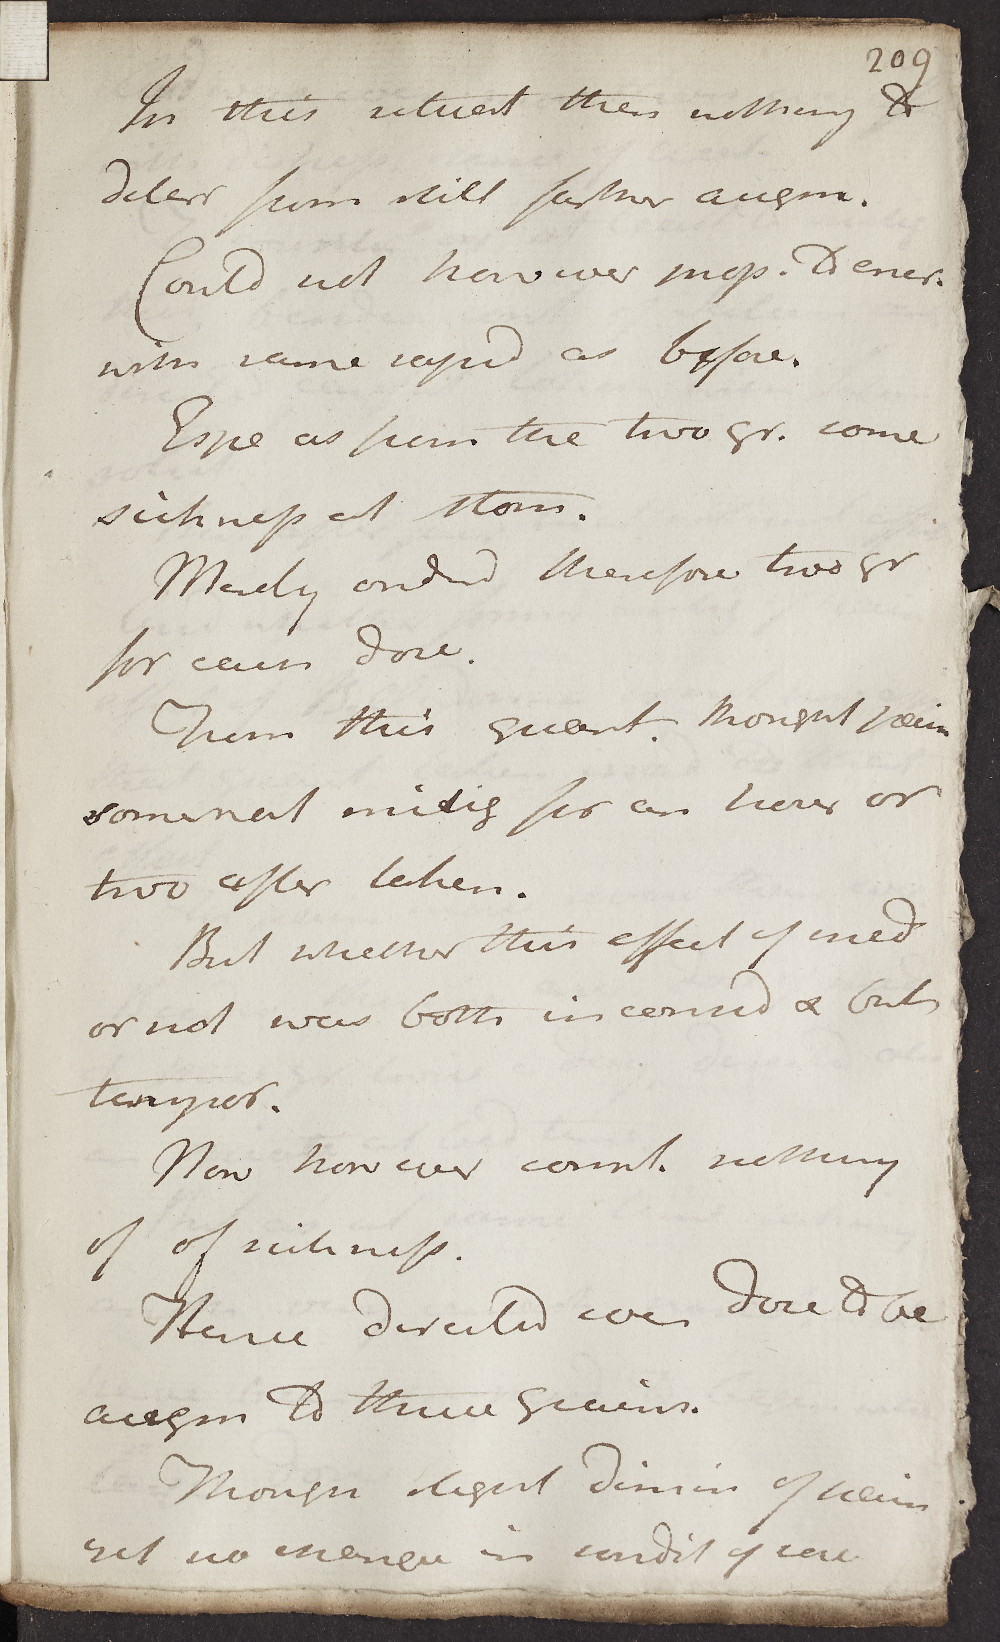 209
In this situat then nothing to
deter from still farther augm.
Could not however prop. to encr.
with same rapid as before.
Espe as from the two gr. some
sickness at stom.
Merely ordered therefore two gr
for each dose.
From this quant. thought pain
somewhat mitig for an hour or
two after taken.
But whether this effect of med
or not was both inconsid & but
tempor.
Now however compl. nothing
of of sickness.
Hence directed even dose to be
augm to three grains.
Though slight dimin of pain
yet no change in condit of sore